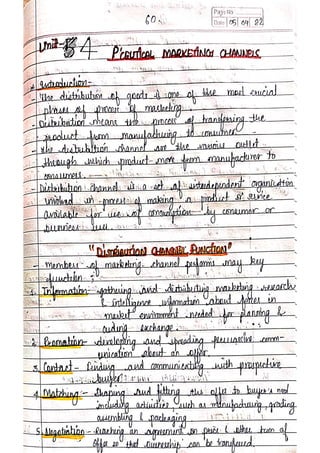 60.
Page No
Date 05 04 22
Unit-4
MARKETING CHANNELS
* Introduction-
- The distribution of goods is one of the most crucial
phases of process of marketing.
- Distribution means the process of transfering the
product from manufacturing to consumer.
- The distribution channel are the various outlet
through which product move from manufacturer to
consumers.
- Distribution channel is a set of interdependent organisation
involved in process of making a product or service
available for use or consumption by consumer or
business user.
"DISTRIBUTION CHANNEL FUNCTION"
- Members of marketing channel performs many key
function:
1. Information- gathering and distributing marketing research
& intelligence information about in
market enviroment needed for planning &
aiding exchange.
2. Promotion- developing and spreading persuasive comm-
unication about an offer.
3. Contact- finding and communicating with prospective
buyer.
4. Matching- Shaping and fitting the offer to buyer's need
including activities such as manufacturing, grading
assembling & packaging
5. Negotiation- Reaching an agreement on price & other term of
offer so that ownership can be transferred.